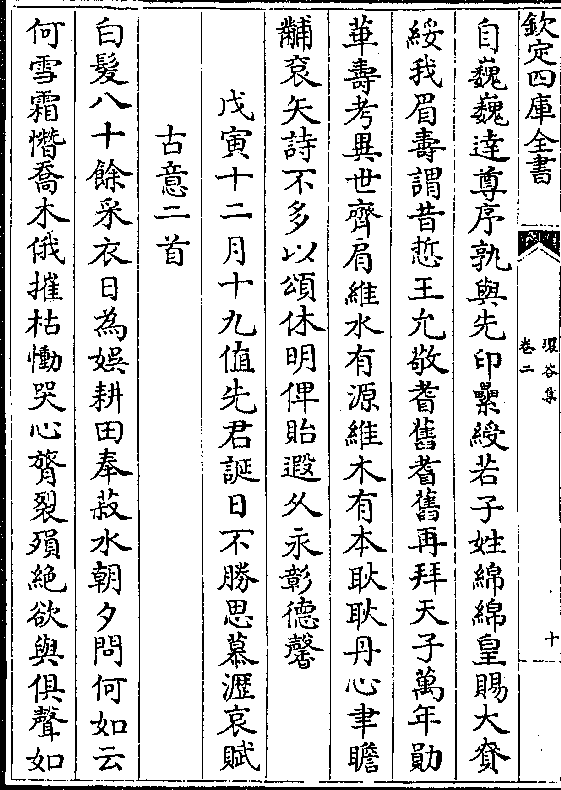 欽定四庫全書
環谷集
卷二
十
自巍巍達尊序孰與先印纍綬若子姓綿綿皇賜大賚
綏我眉壽謂昔悊王允敬耆舊耆舊再拜天子萬年勛
華壽考異世齊肩維水有源維木有本耿耿丹心聿瞻
黼裒矢詩不多以頌休明俾貽遐久永彰德馨
戊寅十二月十九值先君誕日不勝思慕瀝哀賦
古意二首
白髮八十餘采衣日為娛耕田奉菽水朝夕問何如云
何雪霜憯喬木俄摧枯慟哭心膂裂殞絶欲與俱聲如